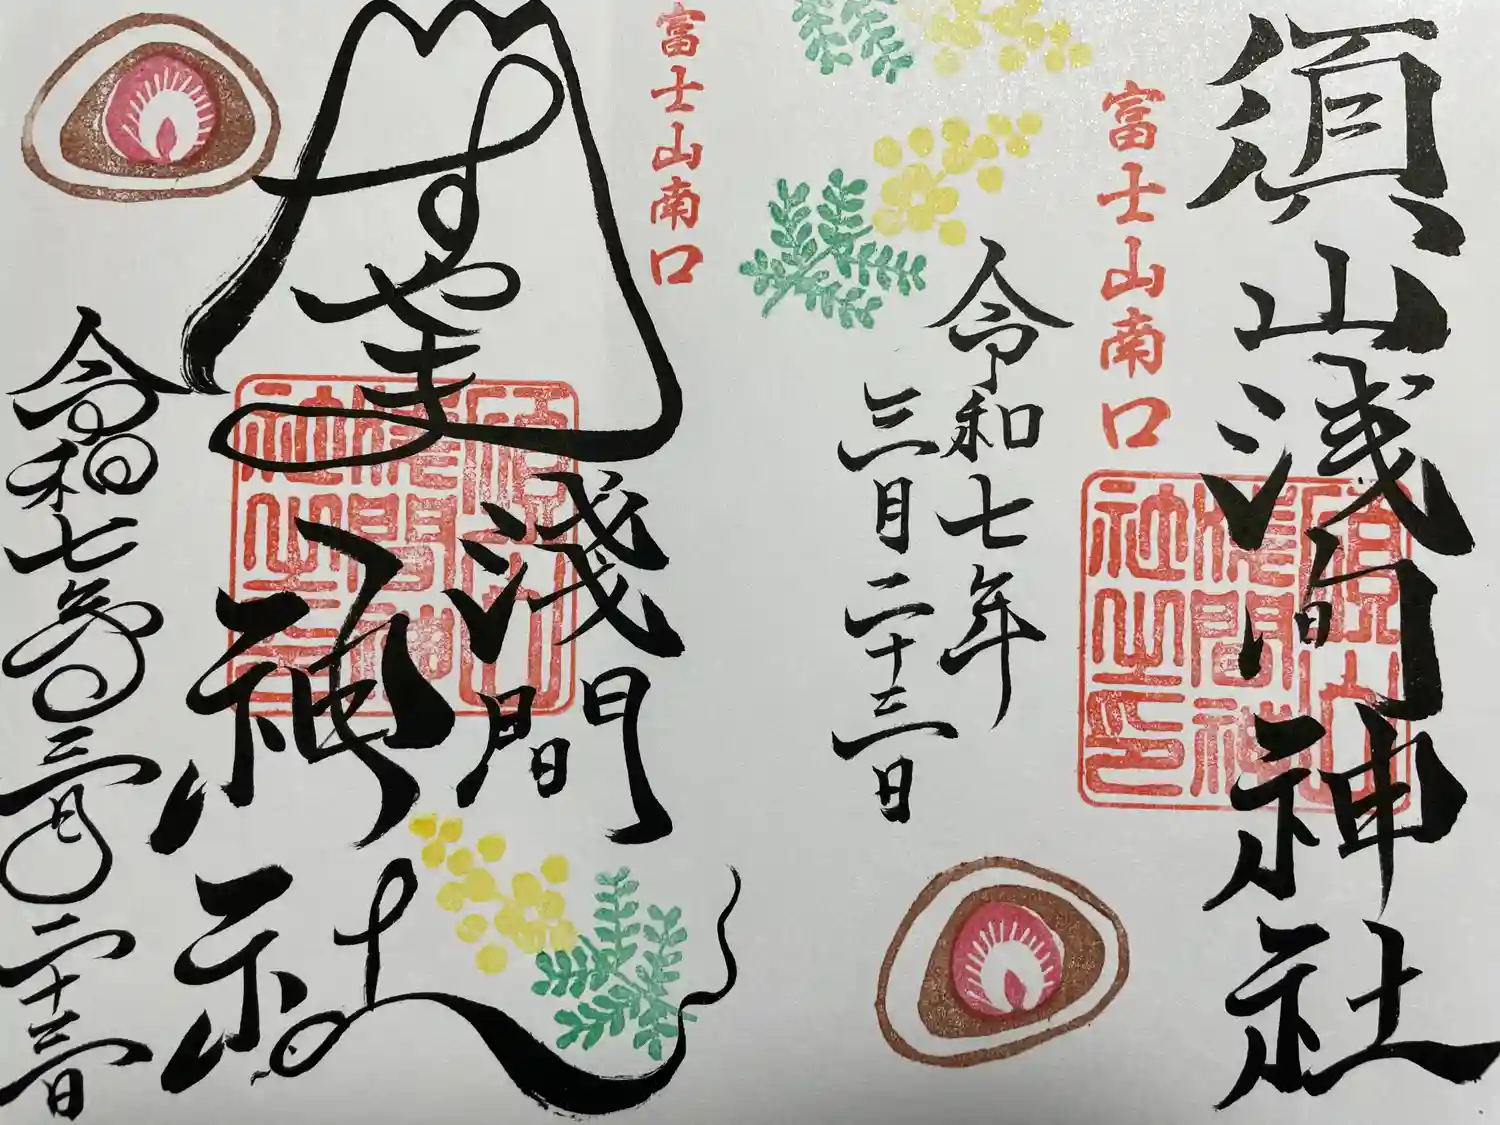 須山浅间神社
富士山南口
令和七年
三月二十三日
須山
浅間神
社之印
富士山南口
すやま
淺間
神社
令和七年三月二十三日
須山
浅間神
社之印